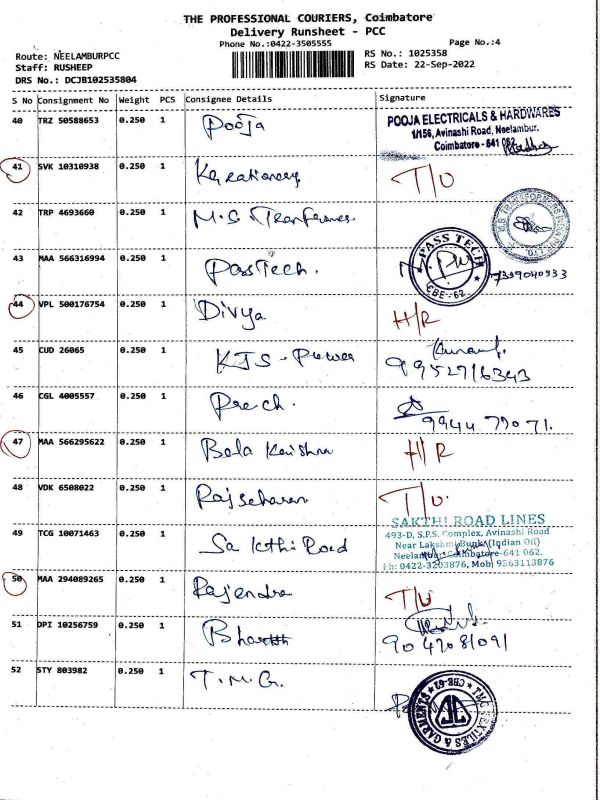 THE PROFESSIONAL COURIERS, Coimbatore
Delivery Runsheet - PCC
Phone No.:0422-3505555
Page No.:4
Route: NEELAMBURPCC
RS No.: 1025358
Staff: RUSHEEP
RS Date: 22-Sep-2022
DRS No.: DCJB102535804
S No Consignment No Weight PCS Consignee Details Signature
40 TRZ 50588653 0.250 1 Pooja
POOJA ELECTRICALS & HARDWARES
1/156, Avinashi Road, Neelambur.
Coimbatore - 641 062
41 SVK 10310938 0.250 1 T/O
42 TRP 4693660 0.250 1 M.S
43 MAA 566316994 0.250 1 PassTech.
PASS TECH
CBE - 62
7339040933
44 VPL 500176754 0.250 1 Divya H/R
45 CUD 26065 0.250 1 KJS - Power
9952716343
46 CGL 4005557 0.250 1
9944 79071.
47 MAA 566295622 0.250 1 Bala Krishna H/R
48 VDK 6508022 0.250 1 T/O
49 TCG 10071463 0.250 1 Sakthi Road
SAKTHI ROAD LINES
493-D, S.P.S. Complex, Avinashi Road
Near Lakshmi Bunk (Indian Oil)
Neelambur, Coimbatore-641 062.
Ph: 0422-3203876, Mob: 9363113876
50 MAA 294089265 0.250 1 Rajendra T/O
51 DPI 10256759 0.250 1
9047081091
52 STY 803982 0.250 1 T.M.G.
TMG TEXTILES & GARMENTS
CBE-62